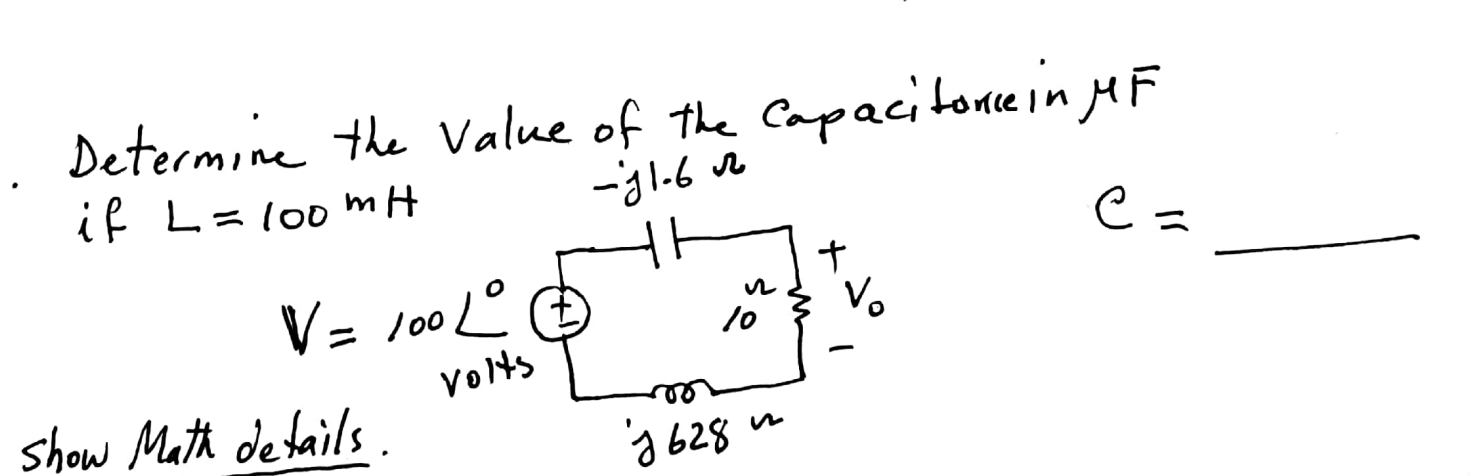 . Determine the Value of the Capacitance in μF
if L = 100 mH
-j1.6 Ω
C = ______
V = 100∠0
volts
+
-
10 Ω
+
Vo
-
j628 Ω
Show Math details.